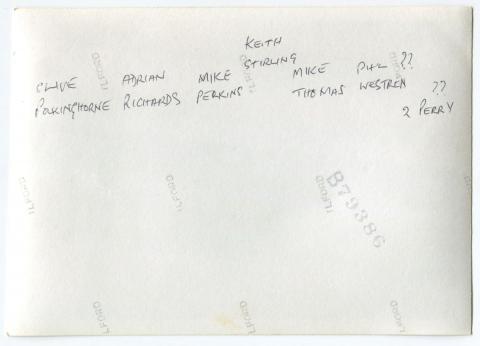 KEITH
STIRLING
CLIVE ADRIAN MIKE MIKE PHIL ??
POLKINGHORNE RICHARDS PERKINS THOMAS WESTREN ??
2 PERRY
ILFORD ILFORD ILFORD
ILFORD ILFORD ILFORD ILFORD
B79386
ILFORD ILFORD ILFORD